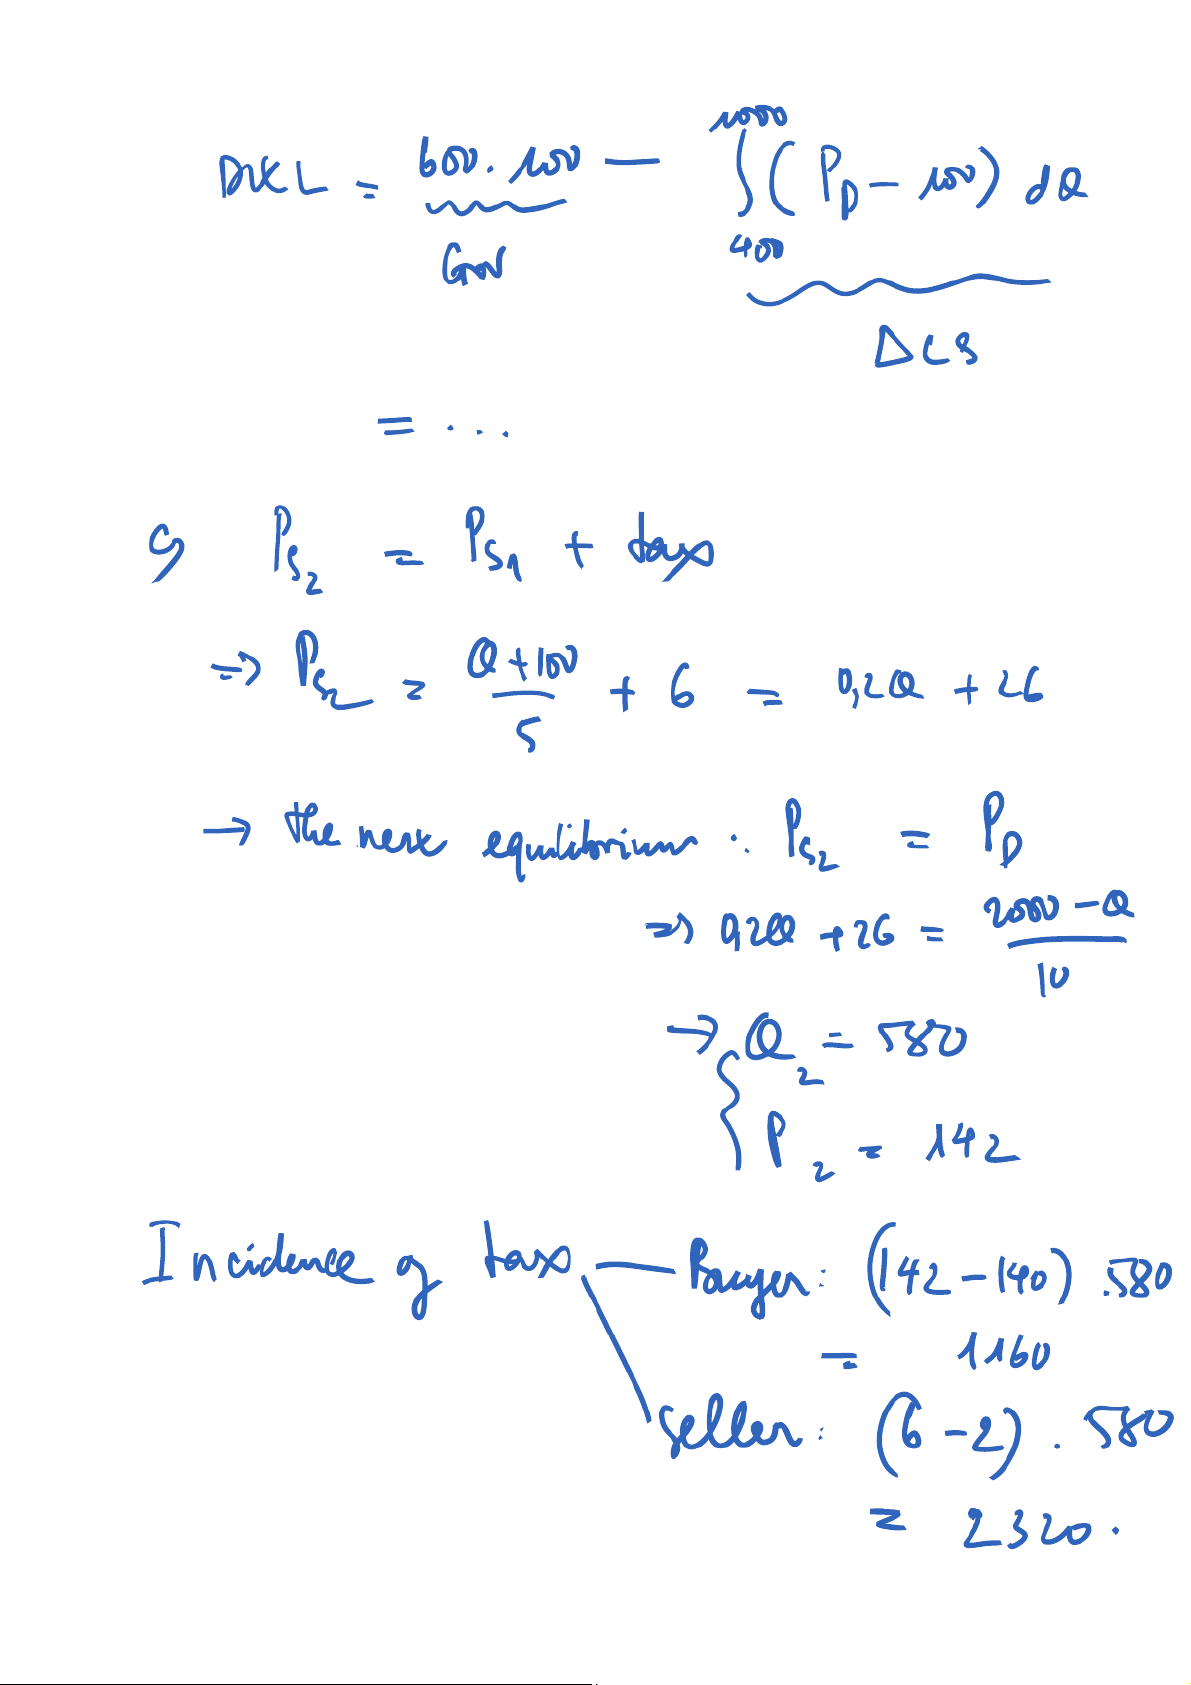 DWL = 600.100 / Gov − ∫_{400}^{1000} (P_D − 100) dQ
Gov
ΔCS
= ...
c, P_{S_2} = P_{S_1} + tax
⇒ P_{S_2} = (Q + 100)/5 + 6 = 0,2Q + 26
→ the new equilibrium : P_{S_2} = P_D
⇒ 0,2Q + 26 = (2000 − Q)/10
→ { Q_2 = 580
P_2 = 142
Incidence of tax — Buyer: (142 − 140) .580
= 1160
Seller: (6 − 2) . 580
= 2320.